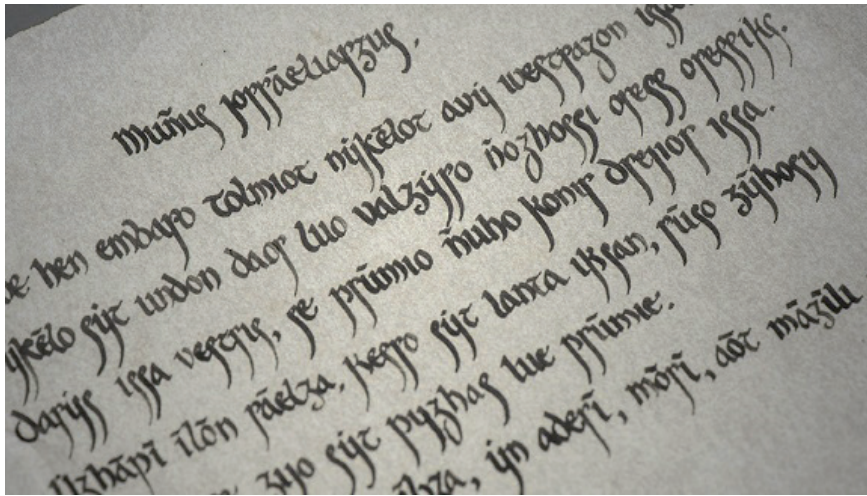 Muñus jorrāeliarzus,
hen embaro tolmiot nykēlot avy westrazon
syt undon daor luo valzȳro ñozhossi oress oressiks.
darys issa vestris, se prūmio ñuho konir drejior issa.
īlōn rāelza. kesro syt lanta iksan, rūso zȳhosy
syt pyzhas lue prūmie.
yn aderī, mōrī, aōt māzīlu